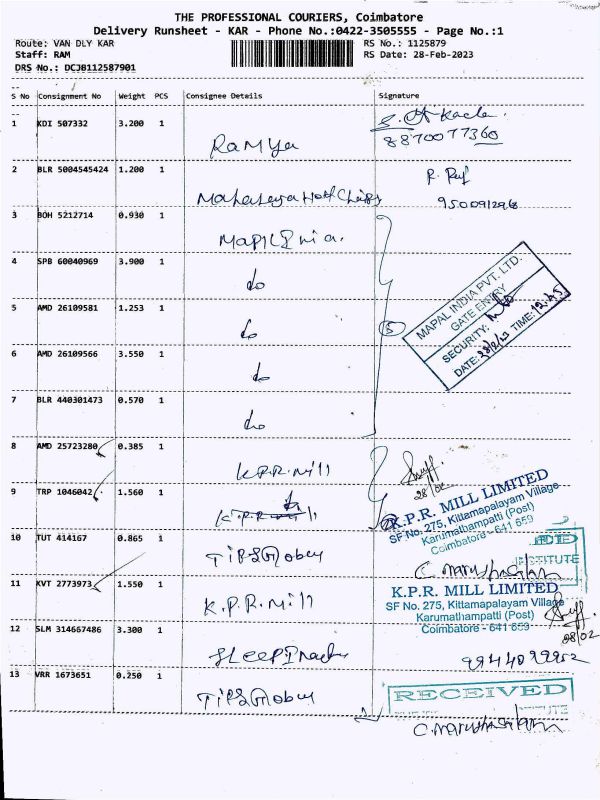 THE PROFESSIONAL COURIERS, Coimbatore
Delivery Runsheet - KAR - Phone No.:0422-3505555 - Page No.:1
Route: VAN DLY KAR
RS No.: 1125879
Staff: RAM
RS Date: 28-Feb-2023
DRS No.: DCJB112587901
S No Consignment No Weight PCS Consignee Details Signature
1 KDI 507332 3.200 1 Ramya
8870077360
2 BLR 5004545424 1.200 1 Hot Chips R. Raj
9500912968
3 BOH 5212714 0.930 1
4 SPB 60040969 3.900 1 do
5 AMD 26109581 1.253 1 do
6 AMD 26109566 3.550 1 do
7 BLR 440301473 0.570 1 do
5
MAPAL INDIA PVT. LTD.
GATE ENTRY
SECURITY:
DATE: 28/2/23 TIME: 12.45
8 AMD 25723280 0.385 1 K.P.R. Mill
28/02
9 TRP 1046042 1.560 1 do
K.P.R. MILL LIMITED
SF No. 275, Kittamapalayam Village
Karumathampatti (Post)
Coimbatore - 641 659
10 TUT 414167 0.865 1
11 KVT 2773973 1.550 1 K.P.R. Mill
K.P.R. MILL LIMITED
SF No. 275, Kittamapalayam Village
Karumathampatti (Post)
Coimbatore - 641 659
28/02
12 SLM 314667486 3.300 1
9944099952
13 VRR 1673651 0.250 1
RECEIVED